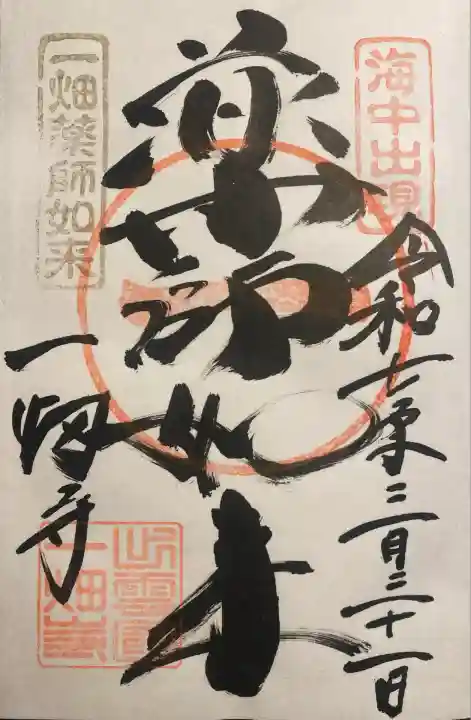 海中出現
令和七年三月三十一日
薬師如来
一畑薬師如来
一畑寺
出雲國
一畑